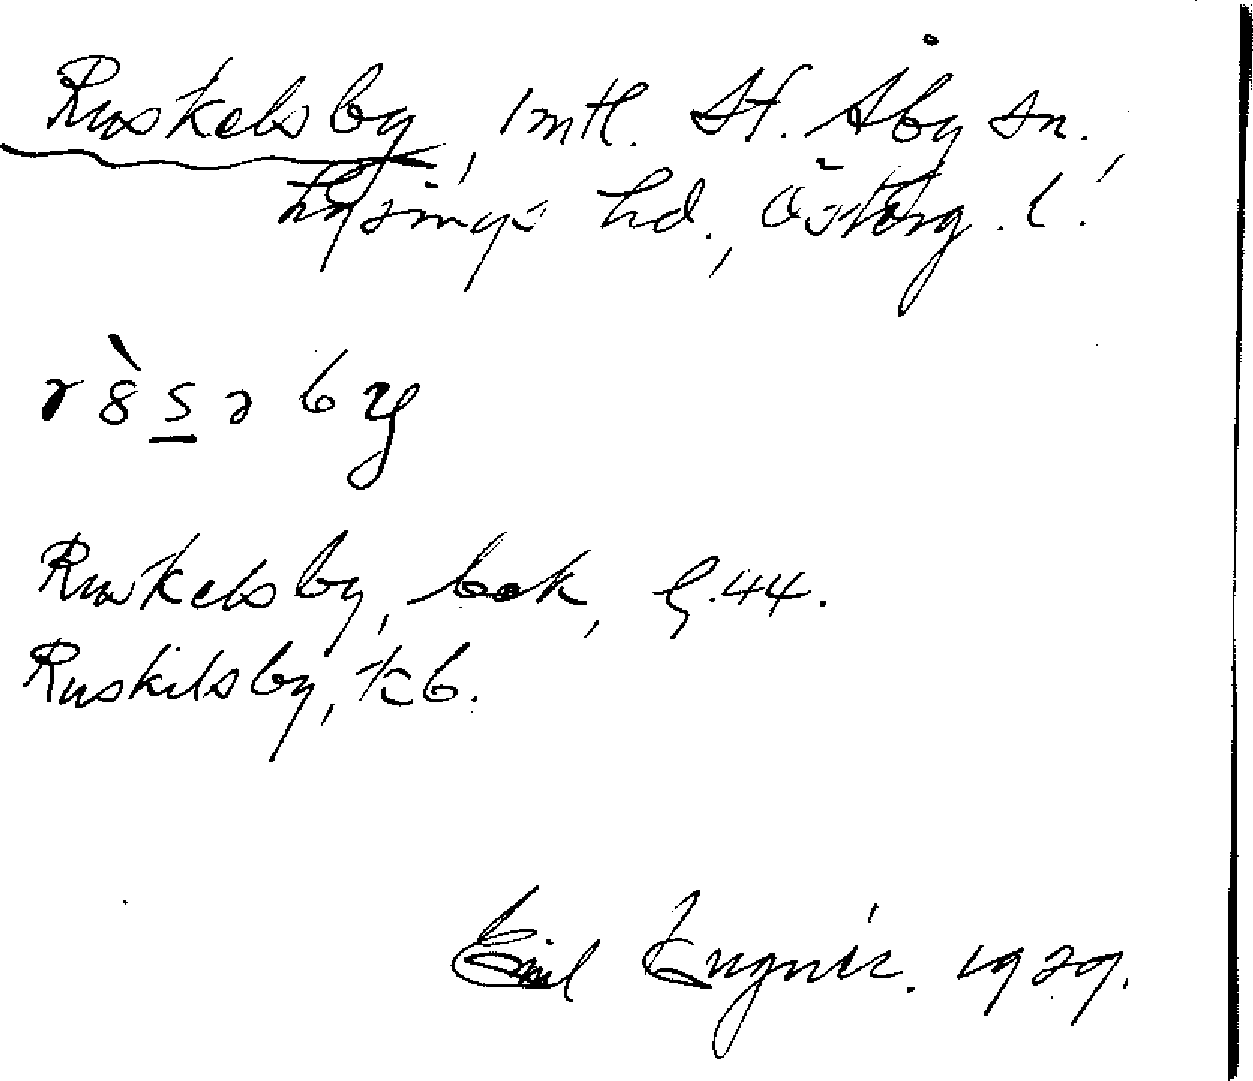 Ruskelsby, 1 mtl. St. Åby sn.,
Lysings hd., Österg. l.
Ruskelsby, bok, G. 44.
Ruskilsby, kb.
Emil 1929.